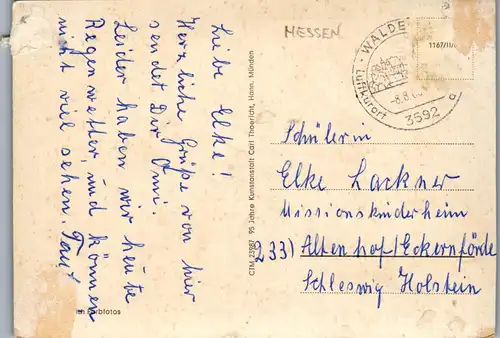 Liebe Elke!
Herzliche Grüße von hier
sendet Dir Omi.
Leider haben wir heute
Regenwetter, und können
nicht viel sehen.
Farbfotos
CTM 23987 95 Jahre Kunstanstalt Carl Thoericht, Hann. Münden
HESSEN
WALDE
Luftkurort
-8.8.
3592
1167/II/
Schülerin
Elke Lackner
Missionskinderheim
2331 Altenhof/Eckernförde
Schleswig Holstein